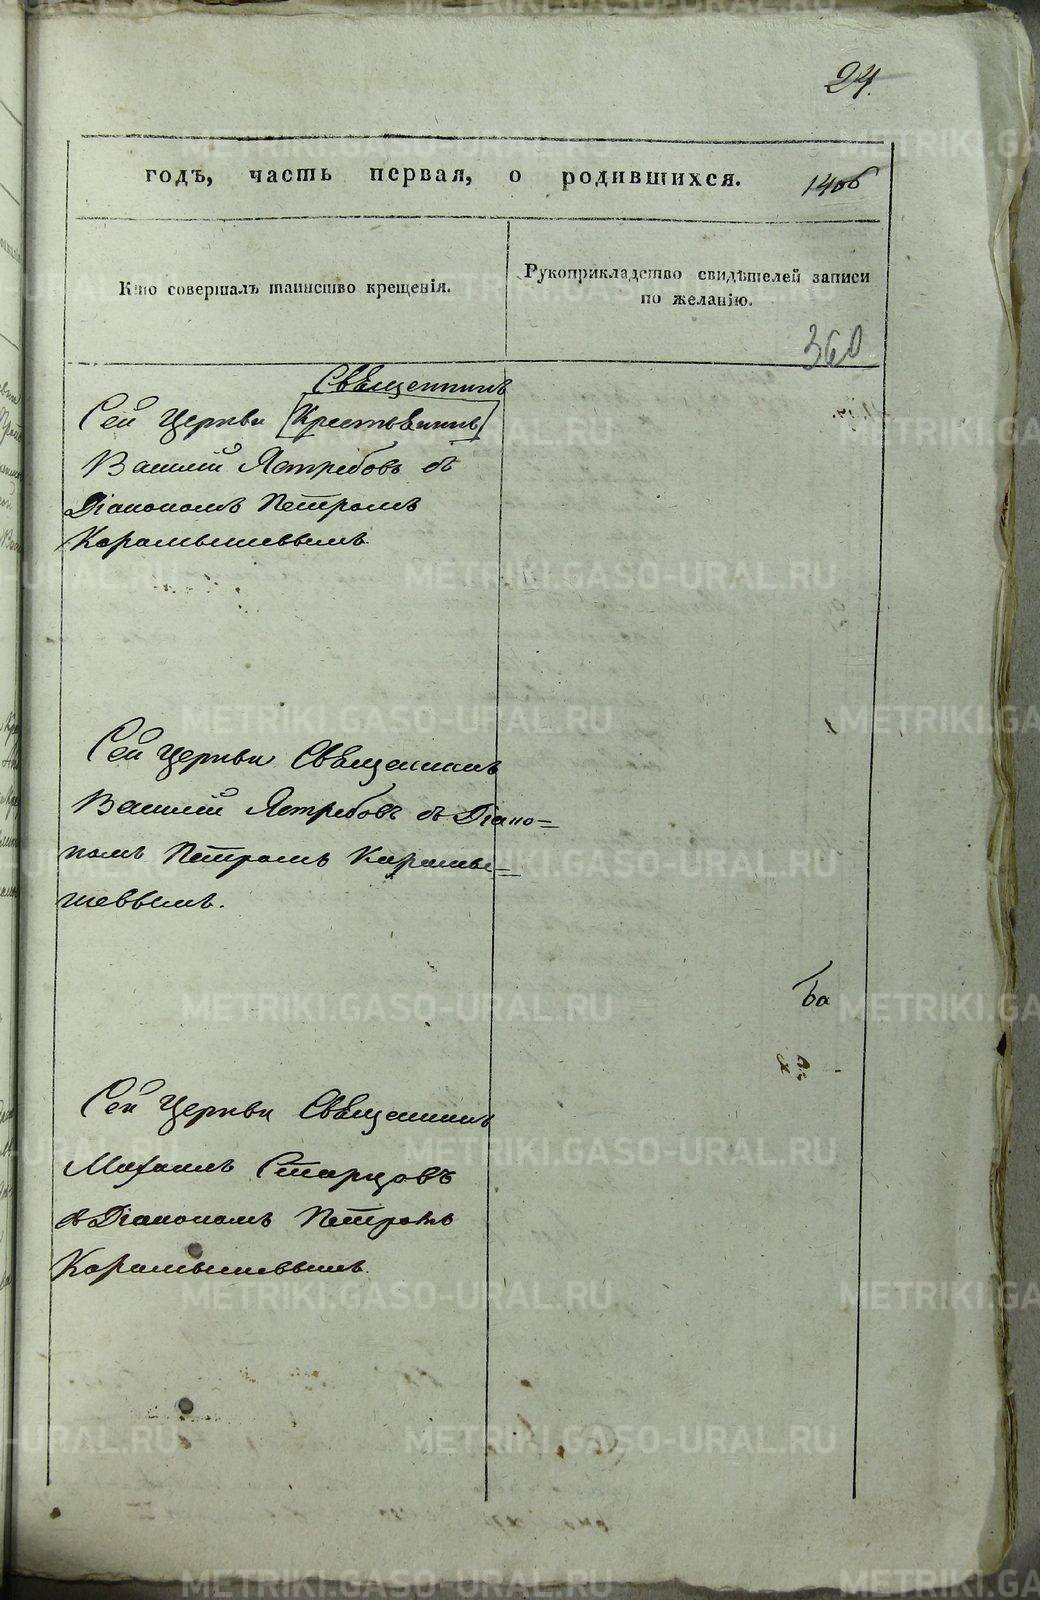 24.
годъ, часть первая, о родившихся.
14об
Кто совершалъ таинство крещенія.
Рукоприкладство свидѣтелей записи
по желанію.
360
Священникъ
Сей Церкви [Крестьянинъ]
Василій Ястребовъ съ
Діакономъ Петромъ
Карамышевымъ.
Сей Церкви Священникъ
Василій Ястребовъ съ Діако=
номъ Петромъ Карамы=
шевымъ.
Ба
Сей Церкви Священникъ
Михаилъ Старцовъ
съ Діакономъ Петромъ
Карамышевымъ.
METRIKI.GASO-URAL.RU